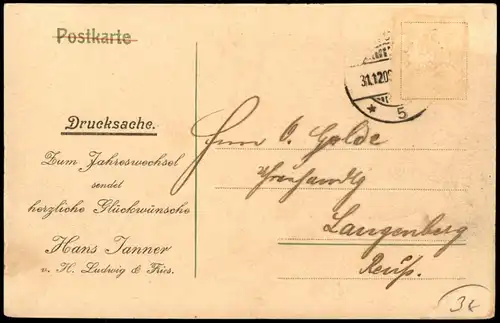 Postkarte
31.12.09
* 5
Drucksache.
Zum Jahreswechsel
sendet
herzliche Glückwünsche
Hans Janner
v. H. Ludwig & Fries.
Herrn O. Golde
Langenberg
Reuß.
3k